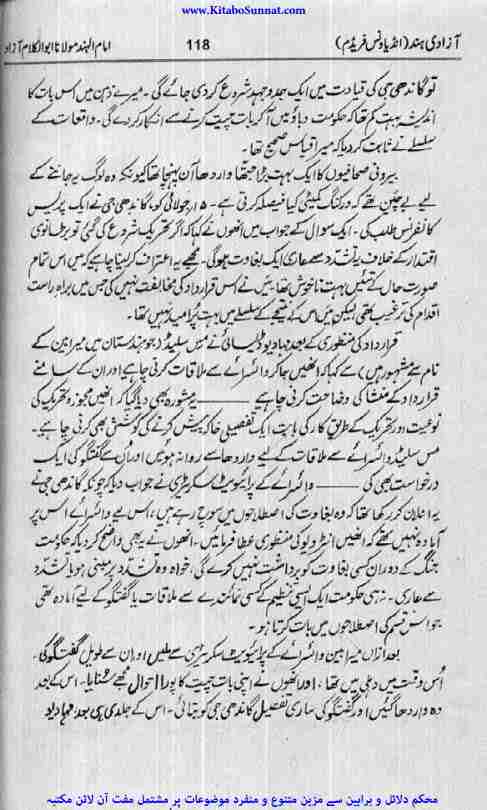 www.KitaboSunnat.com
آزادی ہند (انڈیا ونس فریڈم) 118 امام الہند مولانا ابوالکلام آزاد
تو گاندھی جی کی قیادت میں ایک جدوجہد شروع کردی جائے گی۔ میرے ذہن میں اس بات کا
اندیشہ بہت کم تھا کہ حکومت دباؤ میں آکر بات چیت کرنے سے انکار کردے گی۔ واقعات کے
سلسلے نے ثابت کردیا کہ میرا قیاس صحیح تھا۔
بیرونی صحافیوں کا ایک بہت بڑا جتھا واردھا آن پہنچا تھا کیونکہ وہ لوگ یہ جاننے کے
لیے بے چین تھے کہ ورکنگ کمیٹی کیا فیصلہ کرتی ہے۔ ۱۵ جولائی کو، گاندھی جی نے ایک پریس
کانفرنس طلب کی۔ ایک سوال کے جواب میں انھوں نے کہا کہ اگر تحریک شروع کی گئی تو برطانوی
اقتدار کے خلاف یہ تشدد سے عاری ایک بغاوت ہوگی۔ مجھے یہ اعتراف کرلینا چاہیے کہ میں اس تمام
صورت حال کے تئیں بہت ناخوش تھا۔ میں نے اس قرارداد کی مخالفت نہیں کی جس میں براہِ راست
اقدام کی ترغیب تھی لیکن میں اس کے نتیجے کے سلسلے میں بہت پُرامید نہیں تھا۔
قرارداد کی منظوری کے بعد مہادیو ڈیسائی نے مس سلیڈ (جو ہندستان میں میرا بین کے
نام سے مشہور ہیں) سے کہا کہ انھیں جاکر وائسرائے سے ملاقات کرنی چاہیے اور ان کے سامنے
قرارداد کے منشا کی وضاحت کرنی چاہیے ـــــــ یہ مشورہ بھی دیا گیا کہ انھیں مجوزہ تحریک کی
نوعیت اور تحریک کے طریقِ کار کی بابت ایک تفصیلی خاکہ پیش کرنے کی کوشش بھی کرنی چاہیے۔
مس سلیڈ وائسرائے سے ملاقات کے لیے واردھا سے روانہ ہوئیں اور اُن سے گفتگو کی ایک
درخواست بھی کی ـــــــ وائسرائے کے پرائیویٹ سکریٹری نے جواب دیا کہ چونکہ گاندھی جی نے
یہ اعلان کر رکھا تھا کہ وہ بغاوت کی اصطلاحوں میں سوچ رہے ہیں، اس لیے وائسرائے اس پر
آمادہ نہیں تھے کہ انھیں انٹرویو کی منظوری عطا فرمائیں۔ انھوں نے یہ بھی واضح کردیا کہ حکومت
جنگ کے دوران کسی بغاوت کو برداشت نہیں کرے گی، خواہ وہ تشدد پر مبنی ہو یا تشدد
سے عاری۔ نہ ہی حکومت ایک ایسی تنظیم کے کسی نمائندے سے ملاقات یا گفتگو کے لیے آمادہ تھی
جو اس قسم کی اصطلاحوں میں بات کرتا ہو۔
بعد ازاں میرا بین وائسرائے کے پرائیویٹ سکریٹری سے ملیں اور ان سے طویل گفتگو کی۔
اُس وقت میں دہلی میں تھا، اور انھوں نے اپنی بات چیت کا پورا احوال مجھے سنایا۔ اس کے بعد
وہ واردھا گئیں اور گفتگو کی ساری تفصیل گاندھی جی کو بتائی۔ اس کے جلدی ہی بعد، مہادیو
محکم دلائل و براہین سے مزین متنوع و منفرد موضوعات پر مشتمل مفت آن لائن مکتبہ